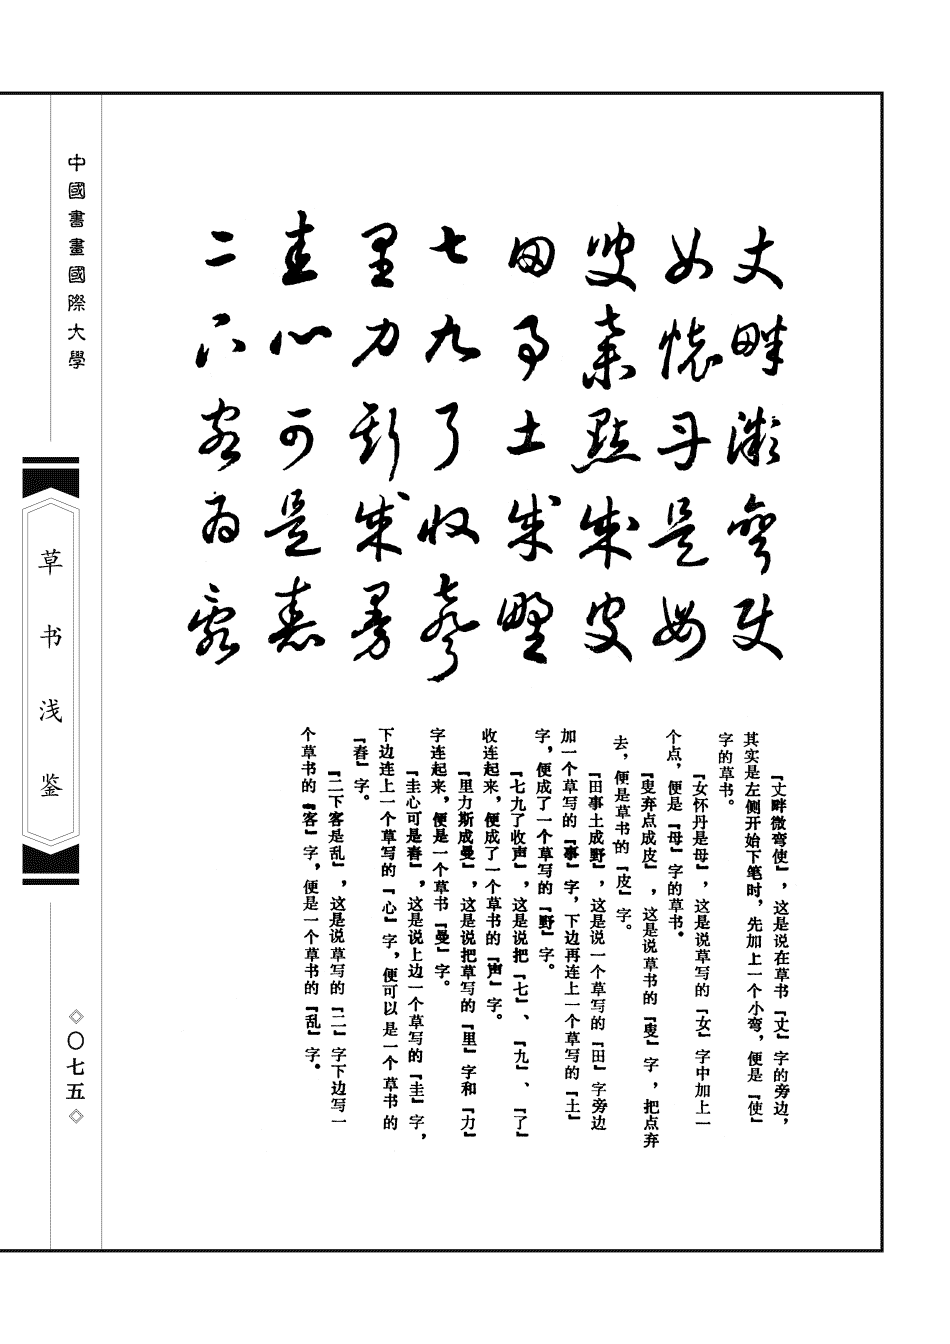 丈畔微彎使
女懷丹是母
叟棄點成皮
田事土成野
七九了收聲
里力斯成曼
圭心可是春
二下客為亂
『丈畔微弯使』，这是说在草书『丈』字的旁边，
其实是左侧开始下笔时，先加上一个小弯，便是『使』
字的草书。
『女怀丹是母』，这是说草写的『女』字中加上一
个点，便是『母』字的草书。
『叟弃点成皮』，这是说草书的『叟』字，把点弃
去，便是草书的『皮』字。
『田事土成野』，这是说一个草写的『田』字旁边
加一个草写的『事』字，下边再连上一个草写的『土』
字，便成了一个草写的『野』字。
『七九了收声』，这是说把『七』、『九』、『了』
收连起来，便成了一个草书的『声』字。
『里力斯成曼』，这是说把草写的『里』字和『力』
字连起来，便是一个草书『曼』字。
『圭心可是春』，这是说上边一个草写的『圭』字，
下边连上一个草写的『心』字，便可以是一个草书的
『春』字。
『二下客是乱』，这是说草写的『二』字下边写一
个草书的『客』字，便是一个草书的『乱』字。
中國書畫國際大學
草书浅鉴
◇〇七五◇